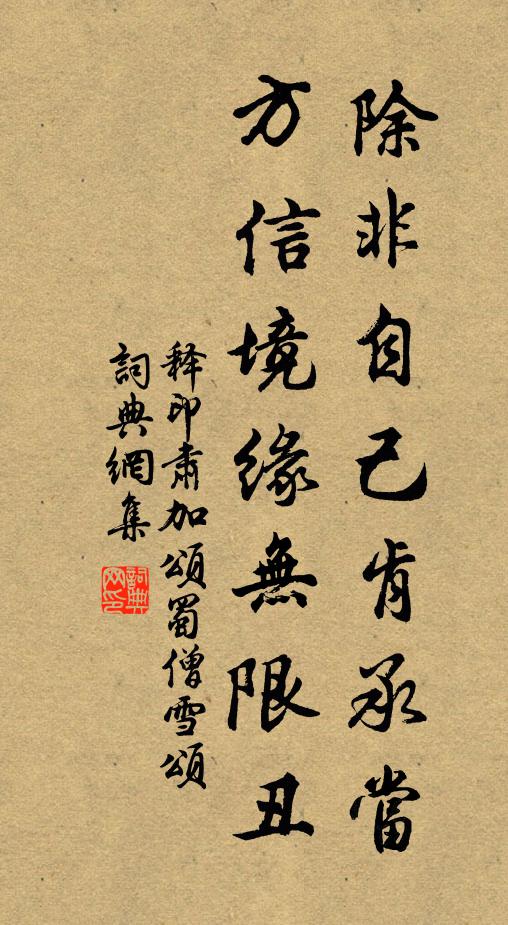 除非自己肯承當
方信境緣無限丑
释印肃加頌蜀僧雪頌
詞典網集
詞典网印